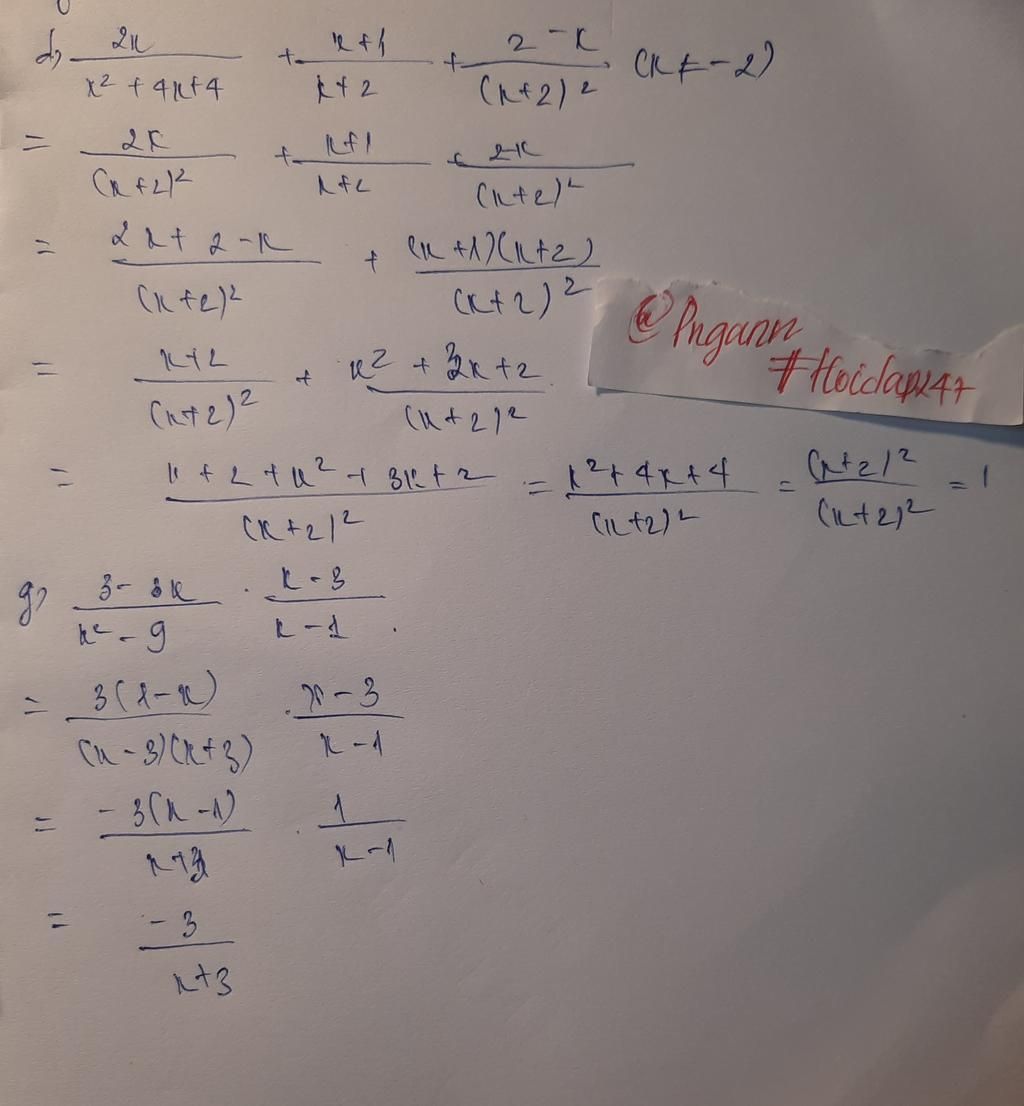 d, 2x / x² + 4x + 4 + x + 1 / x + 2 + 2 - x / (x + 2)² (x ≠ -2)
= 2x / (x + 2)² + x + 1 / x + 2 + 2-x / (x + 2)²
= 2x + 2 - x / (x + 2)² + (x + 1)(x + 2) / (x + 2)²
= x + 2 / (x + 2)² + x² + 3x + 2 / (x + 2)²
= x + 2 + x² + 3x + 2 / (x + 2)² = x² + 4x + 4 / (x + 2)² = (x + 2)² / (x + 2)² = 1
@Pngann
#Hoidap247
g, 3 - 3x / x² - 9 . x - 3 / x - 1 .
= 3(1 - x) / (x - 3)(x + 3) . x - 3 / x - 1
= - 3(x - 1) / x + 3 . 1 / x - 1
= - 3 / x + 3